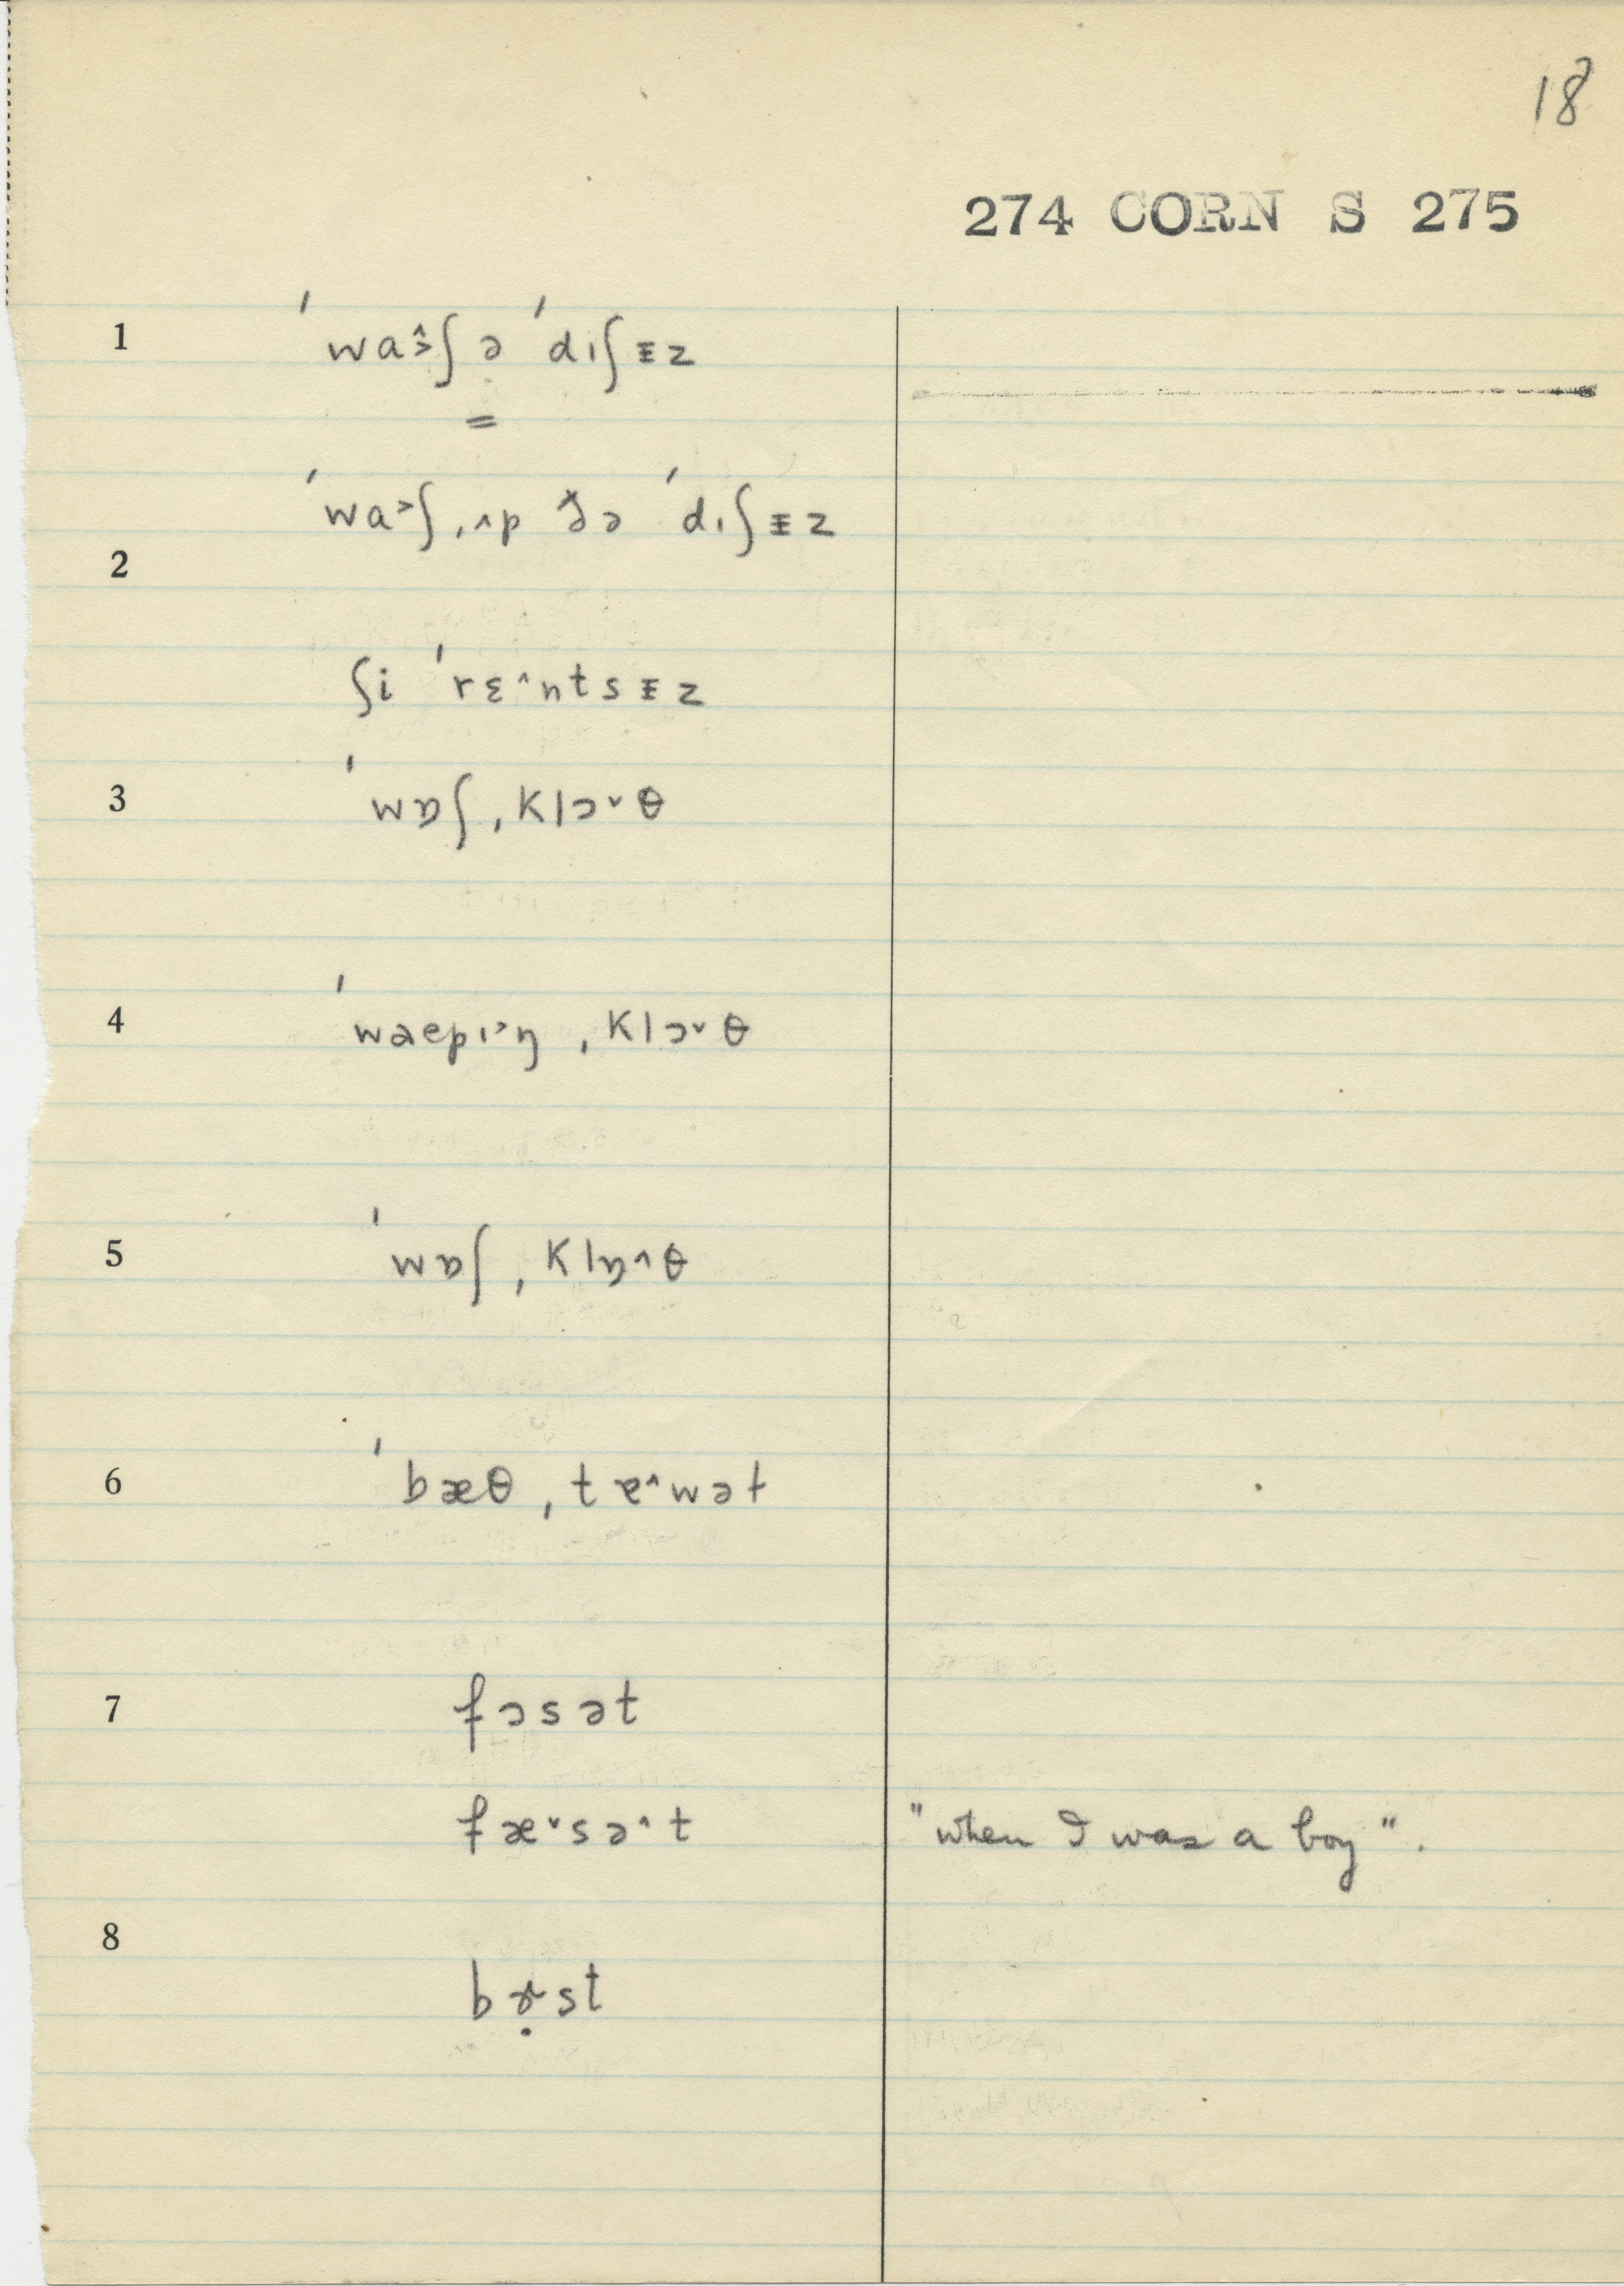 18
274 CORN S 275
1 ˈwa˄˃ʃ ə ˈdɪʃᵻz
=
ˈwa˃ʃ ˌʌp ðə ˈdɪʃᵻz
2
ʃi ˈrɛ˄ntsᵻz
3 ˈwɒʃ ˌklɔ˅θ
4 ˈwaepɪ˃ŋ ˌklɔ˅θ
5 ˈwɒʃ ˌklɒ˄θ
6 ˈbæθ ˌtɐ˄wəɫ
7 fɔsət
fæ˅sə˄t "when I was a boy".
8
bɤ̣st